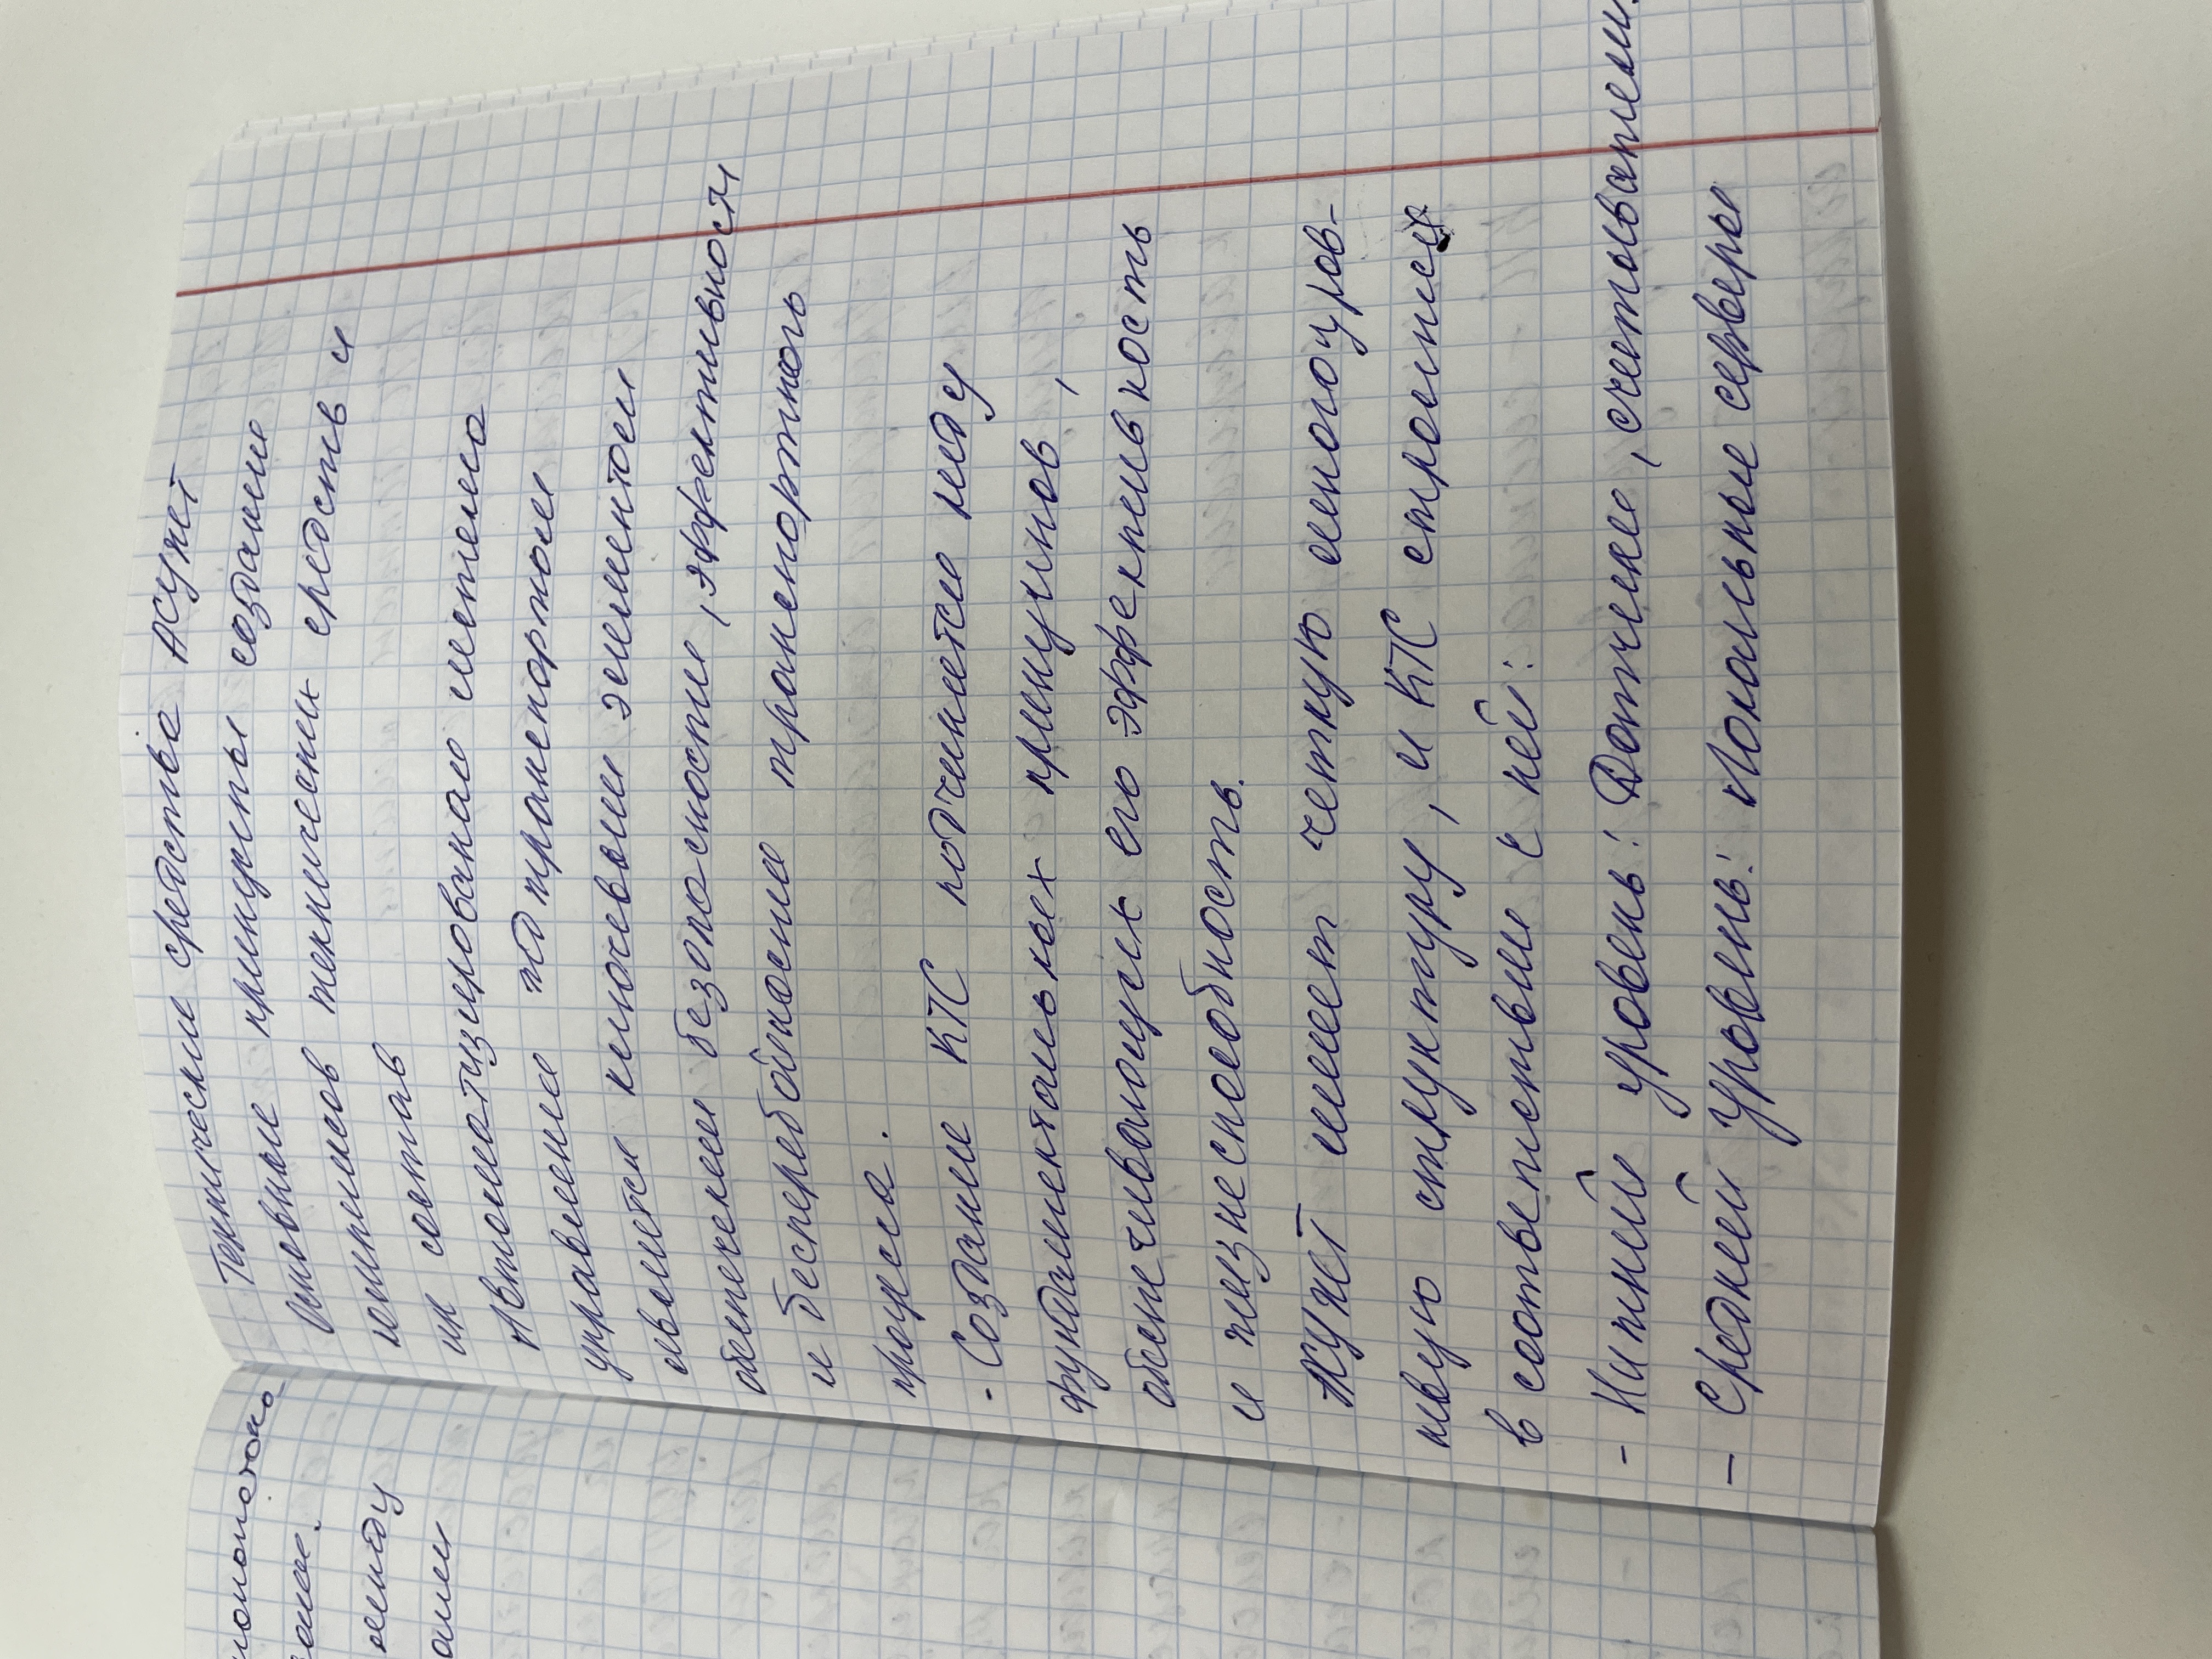 Технические средства АСУЖТ
Основные принципы создания
комплексов технических средств и
их состав
Автоматизированая система
управления ЖД транспортом
является ключевым элементом
обеспечения безопасности, эффективности
и бесперебойности транспортного
процесса.
- Создание КТС подчиняется ряду
фундаментальных принципов,
обеспечивающих его эффективность
и жизнеспособность.
АСУЖТ имеет четкую многоуров-
невую структуру, и КТС строится
в соответствии с ней:
- Нижний уровень: Датчики, считыватели.
- Средний уровень: Локальные серверы